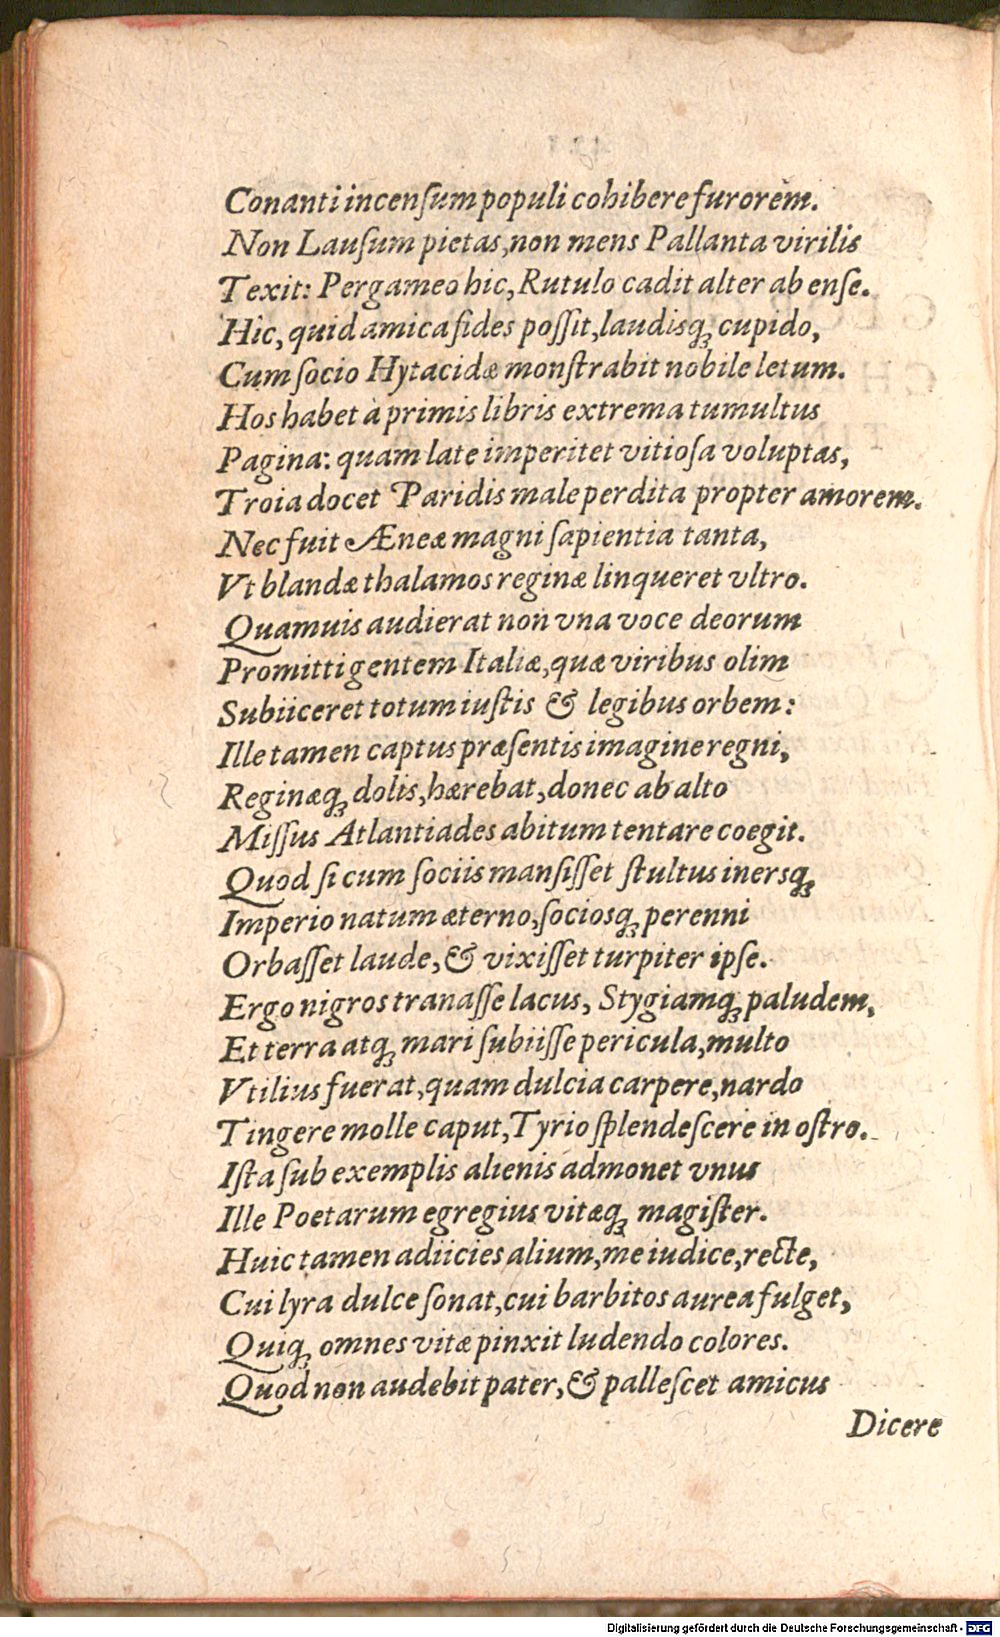 Conanti incenſum populi cohibere furorem.
Non Lauſum pietas, non mens Pallanta virilis
Texit: Pergameo hic, Rutulo cadit alter ab enſe.
Hic, quid amica fides poſſit, laudisq; cupido,
Cum ſocio Hytacidæ monſtrabit nobile letum.
Hos habet à primis libris extrema tumultus
Pagina: quam late imperitet vitioſa voluptas,
Troia docet Paridis male perdita propter amorem.
Nec fuit Æneæ magni ſapientia tanta,
Vt blandæ thalamos reginæ linqueret vltro.
Quamuis audierat non vna voce deorum
Promitti gentem Italiæ, quæ viribus olim
Subiiceret totum iuſtis & legibus orbem:
Ille tamen captus præſentis imagine regni,
Reginæq; dolis, hærebat, donec ab alto
Miſſus Atlantiades abitum tentare coegit.
Quod ſi cum ſociis manſiſſet ſtultus inersq;
Imperio natum æterno, ſociosq; perenni
Orbaſſet laude, & vixiſſet turpiter ipſe.
Ergo nigros tranaſſe lacus, Stygiamq; paludem,
Et terra atq; mari ſubiiſſe pericula, multo
Vtilius fuerat, quam dulcia carpere, nardo
Tingere molle caput, Tyrio ſplendeſcere in oſtro.
Iſta ſub exemplis alienis admonet vnus
Ille Poetarum egregius vitæq; magiſter.
Huic tamen adiicies alium, me iudice, recte,
Cui lyra dulce ſonat, cui barbitos aurea fulget,
Quiq; omnes vitæ pinxit ludendo colores.
Quod non audebit pater, & palleſcet amicus
Dicere
Digitalisierung gefördert durch die Deutsche Forschungsgemeinschaft - DFG